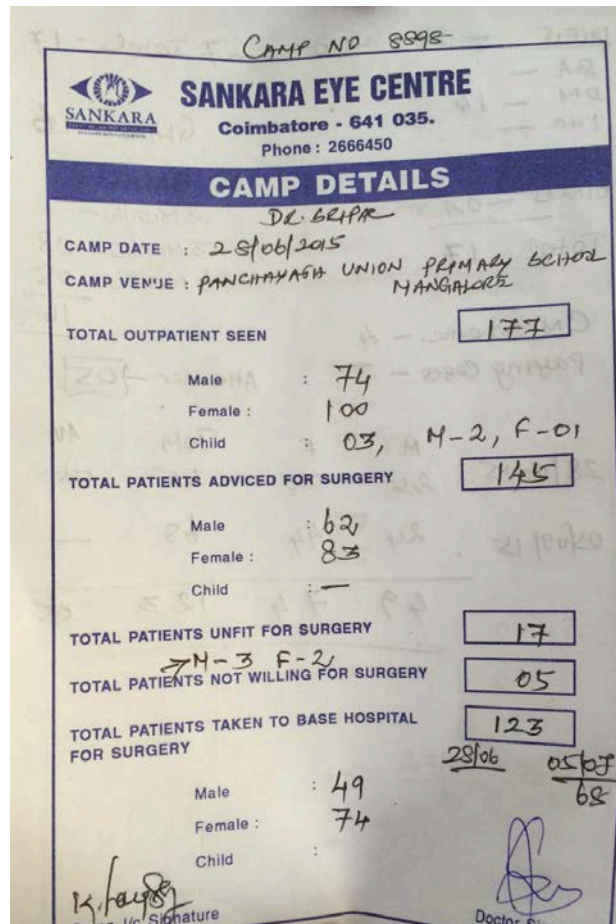 CAMP NO 8898
SANKARA EYE CENTRE
SANKARA
Coimbatore - 641 035.
Phone : 2666450
CAMP DETAILS
CAMP DATE : 28/06/2015
CAMP VENUE : PANCHAYATH UNION PRIMARY SCHOOL
MANGALORE
TOTAL OUTPATIENT SEEN 177
Male : 74
Female : 100
Child : 03, M-2, F-01
TOTAL PATIENTS ADVICED FOR SURGERY 145
Male : 62
Female : 83
Child : —
TOTAL PATIENTS UNFIT FOR SURGERY 17
M-3 F-2
TOTAL PATIENTS NOT WILLING FOR SURGERY 05
TOTAL PATIENTS TAKEN TO BASE HOSPITAL 123
FOR SURGERY
28/06 05/07
68
Male : 49
Female : 74
Child :
Signature
Doctor